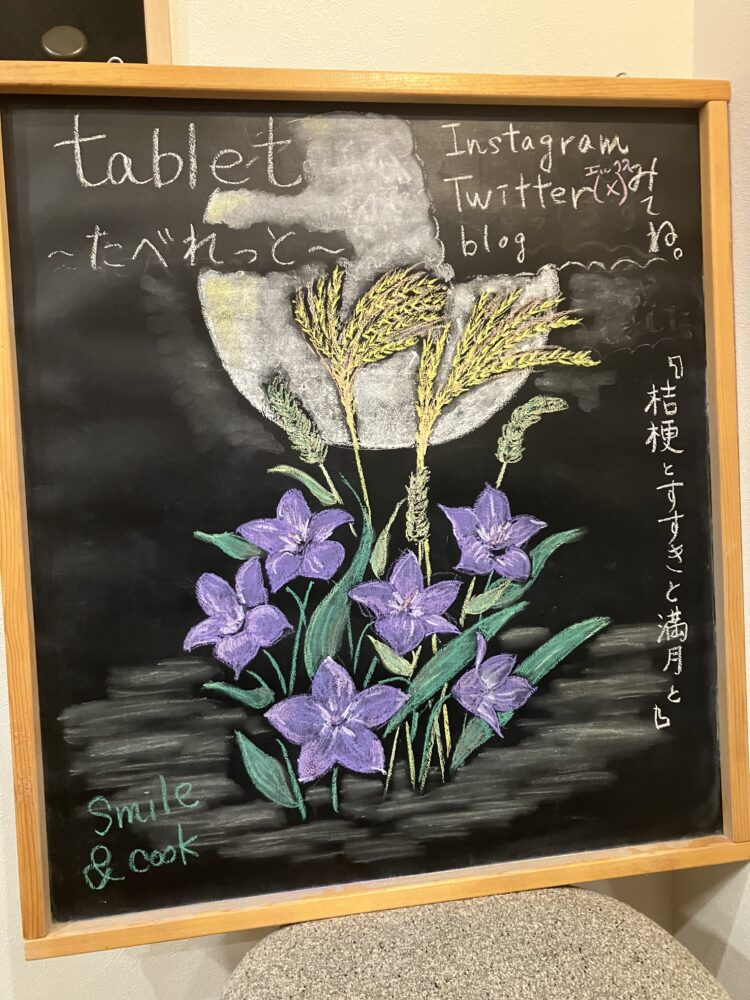 tablet
～たべれっと～
Instagram
Twitter(X)エックス
blog
みてね。
『桔梗とすすきと満月と』
Smile
& cook